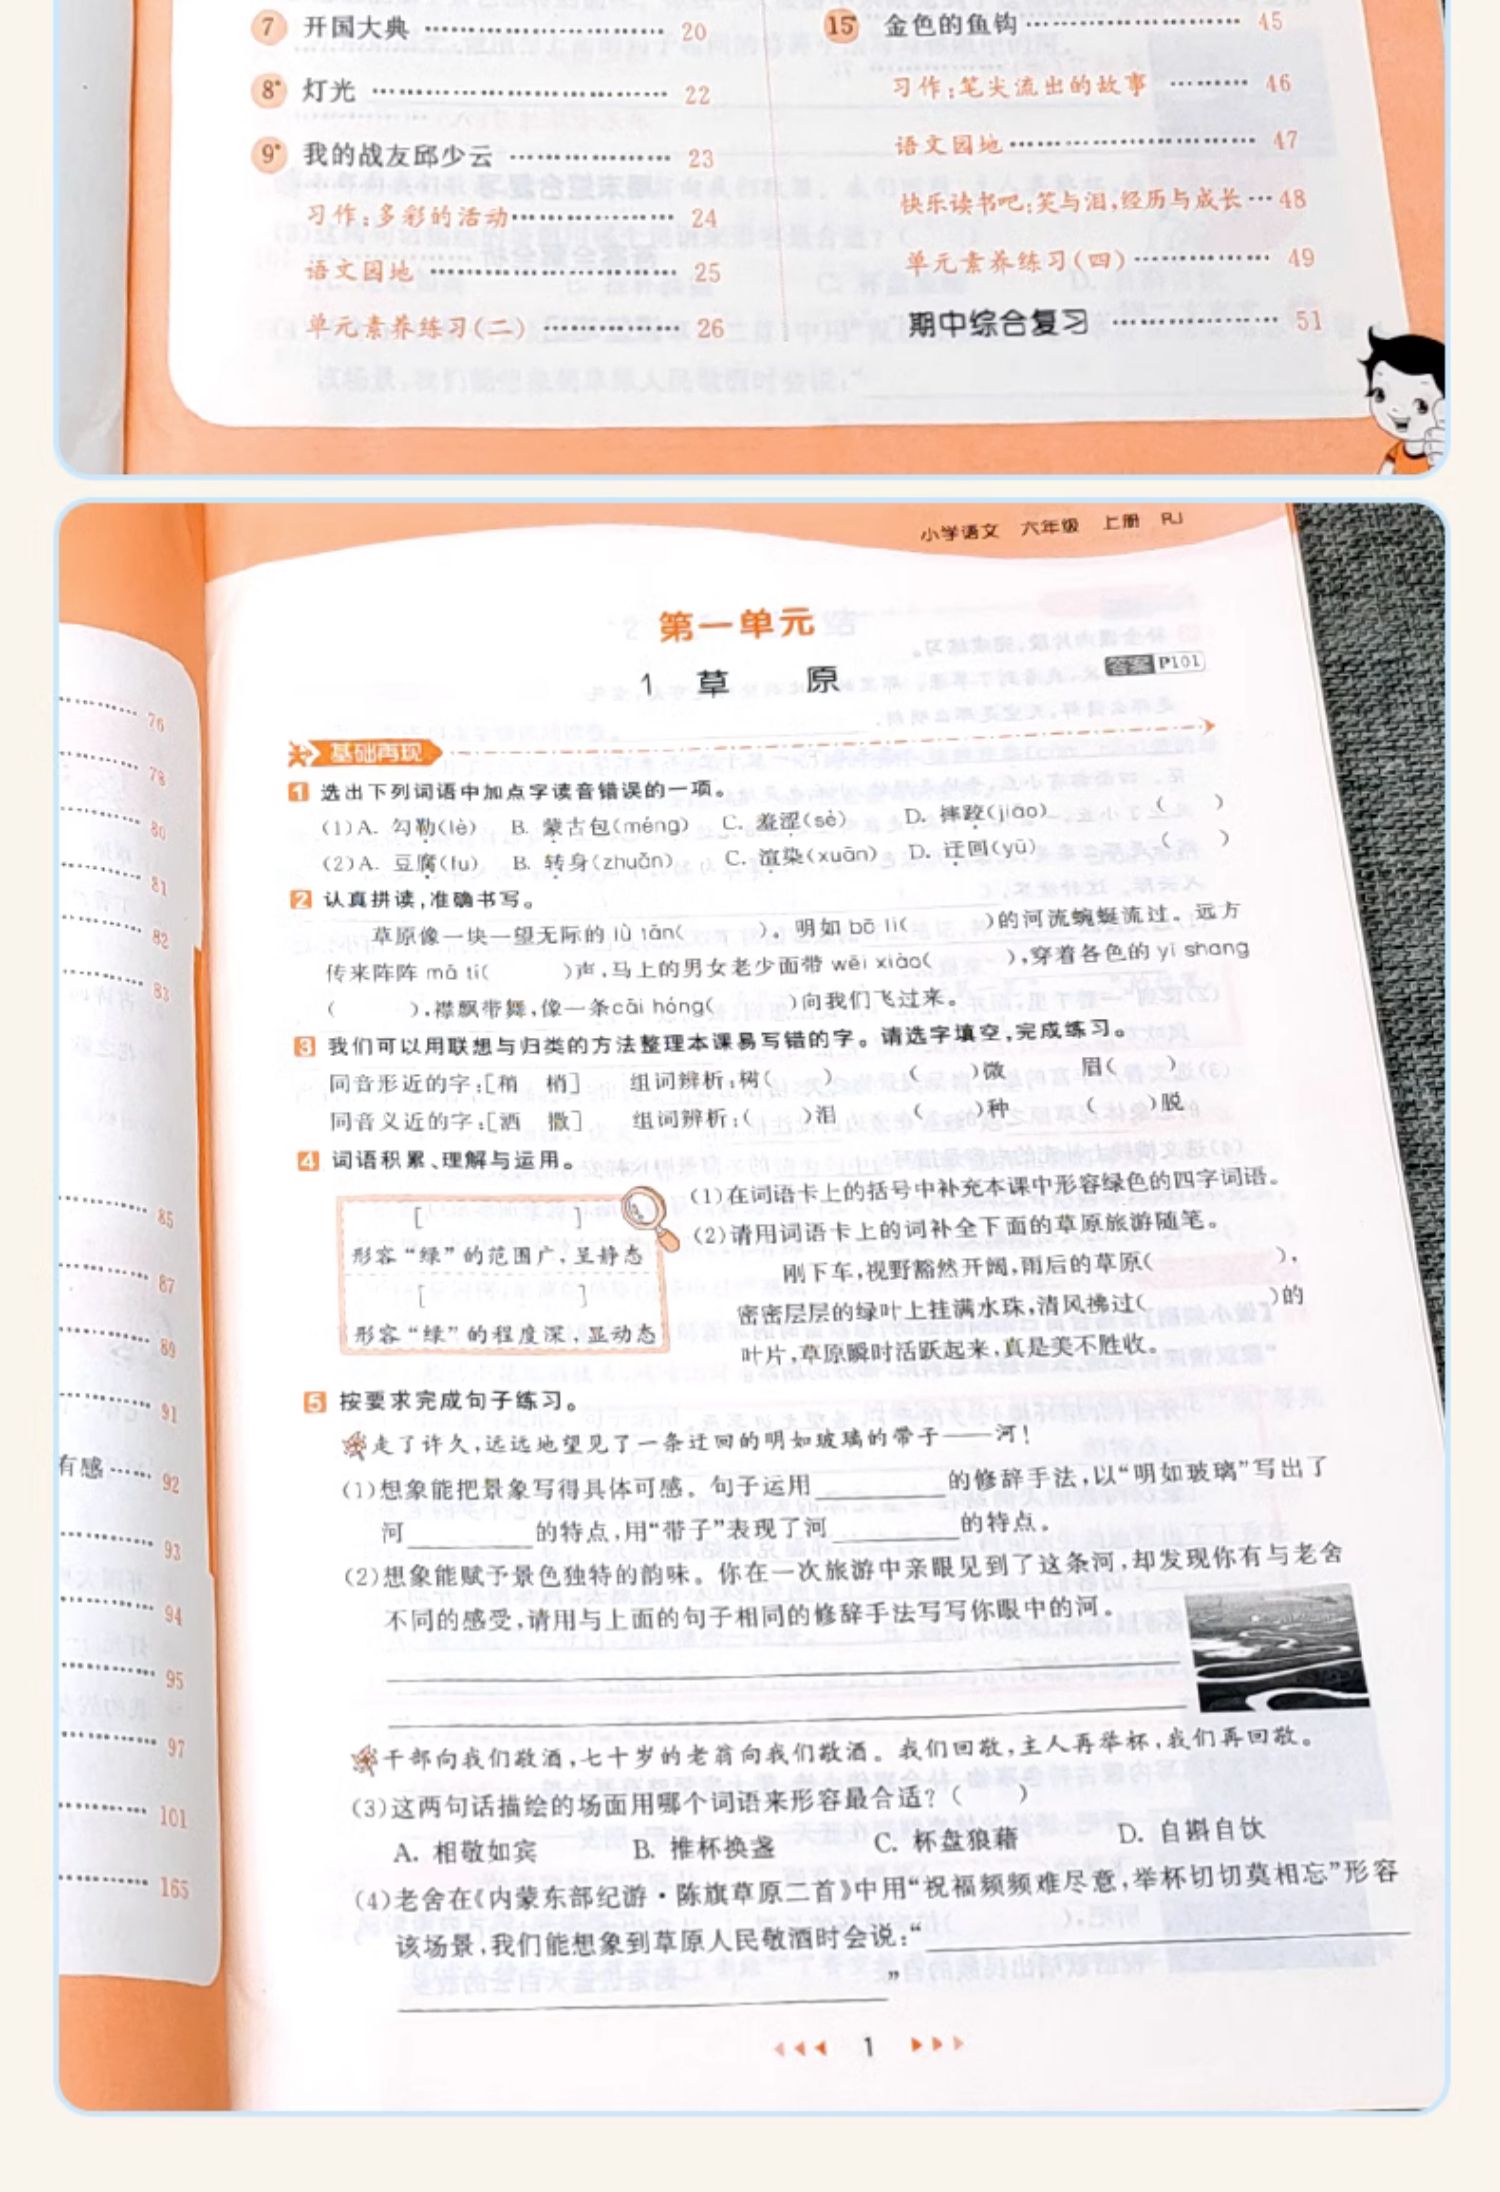 7 开国大典 20
8* 灯光 22
9* 我的战友邱少云 23
习作:多彩的活动 24
语文园地 25
单元素养练习(二) 26
15* 金色的鱼钩 45
习作:笔尖流出的故事 46
语文园地 47
快乐读书吧:笑与泪,经历与成长 48
单元素养练习(四) 49
期中综合复习 51
76
78
80
81
82
83
85
87
89
91
有感 92
93
94
95
97
101
165
小学语文 六年级 上册 RJ
第一单元
1 草 原
答案 P101
基础再现
1 选出下列词语中加点字读音错误的一项。
(1)A. 勾勒(lè) B. 蒙古包(méng) C. 羞涩(sè) D. 摔跤(jiāo) ( )
(2)A. 豆腐(fu) B. 转身(zhuǎn) C. 渲染(xuān) D. 迂回(yū) ( )
2 认真拼读,准确书写。
草原像一块一望无际的 lǜ tǎn( )。明如 bō li( )的河流蜿蜒流过。远方
传来阵阵 mǎ tí( )声,马上的男女老少面带 wēi xiào( ),穿着各色的 yī shang
( ),襟飘带舞,像一条cǎi hóng( )向我们飞过来。
3 我们可以用联想与归类的方法整理本课易写错的字。请选字填空,完成练习。
同音形近的字:[稍 梢] 组词辨析:树( ) ( )微 眉( )
同音义近的字:[洒 撒] 组词辨析:( )泪 ( )种 ( )脱
4 词语积累、理解与运用。
[ ]
形容“绿”的范围广,呈静态
[ ]
形容“绿”的程度深,显动态
(1)在词语卡上的括号中补充本课中形容绿色的四字词语。
(2)请用词语卡上的词补全下面的草原旅游随笔。
刚下车,视野豁然开阔,雨后的草原( ),
密密层层的绿叶上挂满水珠,清风拂过( )的
叶片,草原瞬时活跃起来,真是美不胜收。
5 按要求完成句子练习。
走了许久,远远地望见了一条迂回的明如玻璃的带子——河!
(1)想象能把景象写得具体可感。句子运用________的修辞手法,以“明如玻璃”写出了
河________的特点,用“带子”表现了河________的特点。
(2)想象能赋予景色独特的韵味。你在一次旅游中亲眼见到了这条河,却发现你有与老舍
不同的感受,请用与上面的句子相同的修辞手法写写你眼中的河。
干部向我们敬酒,七十岁的老翁向我们敬酒。我们回敬,主人再举杯,我们再回敬。
(3)这两句话描绘的场面用哪个词语来形容最合适?( )
A. 相敬如宾 B. 推杯换盏 C. 杯盘狼藉 D. 自斟自饮
(4)老舍在《内蒙东部纪游·陈旗草原二首》中用“祝福频频难尽意,举杯切切莫相忘”形容
该场景,我们能想象到草原人民敬酒时会说:“________
________”
1